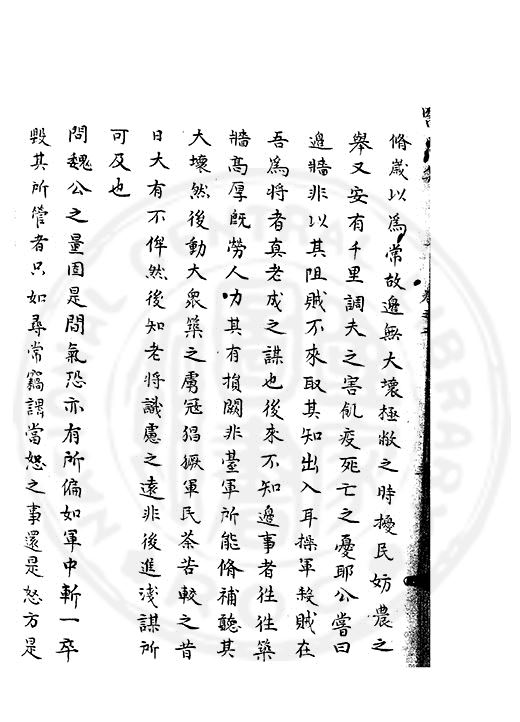 脩歲以爲常故邊無大壞極敝之時擾民妨農之
舉又安有千里調夫之害飢疫死亡之憂耶公嘗曰
邊牆非以其阻賊不來取其知出入耳操軍殺賊在
吾爲將者真老成之謀也後來不知邊事者徃徃築
牆高厚旣勞人力其有損闕非臺軍所能脩補聽其
大壞然後動大衆築之虜冦猖獗軍民荼苦較之昔
日大有不侔然後知老將識慮之遠非後進淺謀所
可及也
問魏公之量固是間氣恐亦有所偏如軍中斬一卒
毀其所管者只如尋常竊謂當恕之事還是怒方是